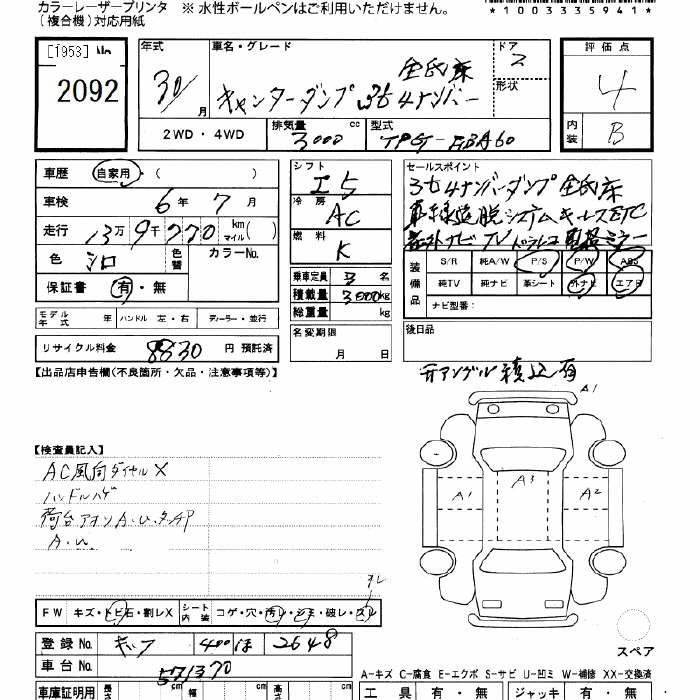 カラーレーザープリンタ ※水性ボールペンはご利用いただけません。
(複合機)対応用紙
*1003335941*
[1953] No
2092
年式 30/ 月
車名・グレード 全低床
キャンターダンプ 3t 4ナンバー
ドア 2
形状
評価点 4
内装 B
2WD・4WD
排気量 3000 cc
型式 TPG-FBA60
車歴 自家用・( )
車検 6年 7月
走行 13万9千270 km マイル( )
色 シロ 色替 カラーNo.
保証書 有・無
シフト I5
冷房 AC
燃料 K
乗車定員 3 名
積載量 3000kg
総重量 kg
セールスポイント
3t4ナンバーダンプ 全低床
車線逸脱システム キーレス ETC
社外ナビ TV ドラレコ 電格ミラー
装備品
S/R 純A/W P/S P/W ABS
純TV 純ナビ 革シート 外ナビ エアB
ナビ型番:
モデル年式 年 ハンドル 左・右 ディーラー・並行
名変期限 月 日
後日品
リサイクル料金 8830 円 預託済
【出品店申告欄(不良箇所・欠品・注意事項等)】
アングル積込有
A1
A1 A3 A2
【検査員記入】
AC風向ダイヤルX
ハンドルハゲ
荷台アオリ A.U.タ.サP
A.U
スレ
FW キズ・トビ石・割レX シート内装 コゲ・穴・汚レ・シミ・破レ・スレ
登録No. 400 ほ 2648
車台No. 571370
スペア
A-キズ C-腐食 E-エクボ S-サビ U-凹ミ W-補修 XX-交換済
車庫証明用 長さ cm 幅 cm 高さ cm
工具 有・無 ジャッキ 有・無